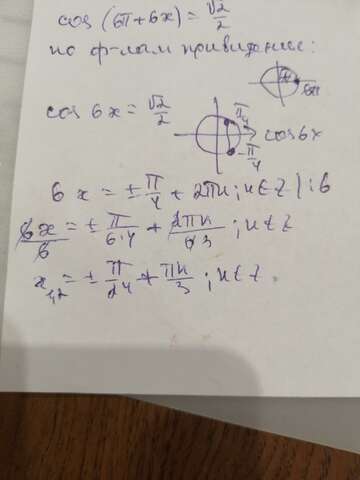 cos (6π + 6x) = √2/2
по ф-лам привидение:
6π
cos 6x = √2/2
π/4
cos6x
-π/4
6x = ± π/4 + 2πn; n ∈ Z | :6
6x/6 = ± π/6·4 + 2πn/6 3 ; n ∈ Z
x₁,₂ = ± π/24 + πn/3 ; n ∈ Z.